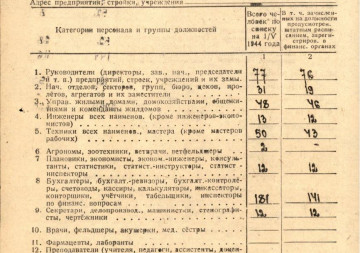 Адрес предприятия, стройки, учреждения
Категории персонала и группы должностей
Всего человек по списку на 1/V 1944 года
В т. ч. зачисленных на должности предусмотрен. штатным расписанием, зарегистриров. в финанс. органах
1 2
1. Руководители (директоры, зав., нач., председатели и т. п.) предприятий, строек, учреждений и их замы. 77 76
2. Нач. отделов, секторов, групп, бюро, цехов, агрегатов и их заместители 31 19
3. Управ. жилыми домами, домохозяйствами, общежитиями и коменданты жилдомов 48 46
4. Инженеры всех наименов. (кроме инженеров-экономистов) 13 12
5. Техники всех наименов., мастера (кроме мастеров рабочих) 50 43
6. Агрономы, зоотехники, ветврачи, ветфельдшеры 2 -
7. Плановики, экономисты, эконом.-инженеры, консультанты, статистики, статист.-инструкторы, статист.-инспекторы 12 12
8. Бухгалтеры, бухгалт.-ревизоры, бухгалт.-контролеры, счетоводы, кассиры, калькуляторы, инкассаторы, конторщики, учётчики, табельщики, инспекторы по финанс. вопросам 181 141
9. Секретари, делопроизвод., машинистки, стенографисты, чертёжники 12 12
10. Врачи, фельдшеры, акушерки, мед. сёстры
11. Фармацевты, лаборанты
12. Преподаватели (учителя, педагоги, ассистенты,